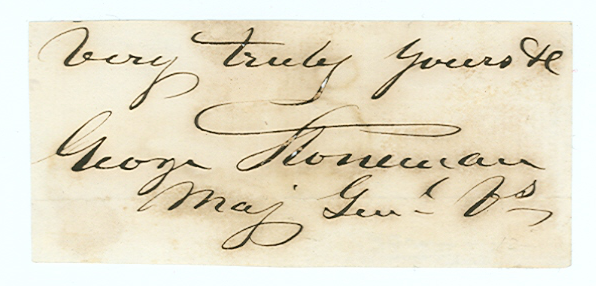 Very truly yours &c
George Stoneman
Maj Genl Vs